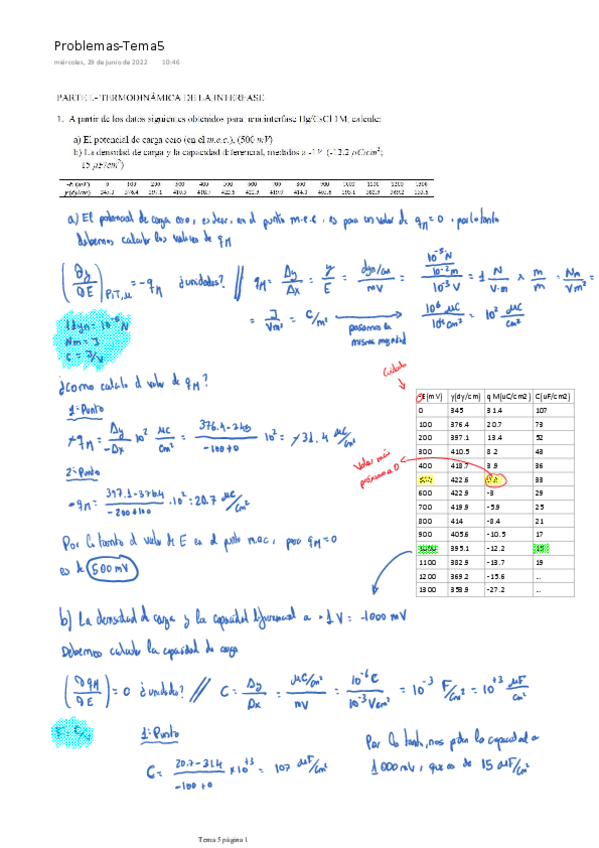 Problemas-Tema5
miércoles, 29 de junio de 2022 10:46
PARTE I.- TERMODINÁMICA DE LA INTERFASE
1. A partir de los datos siguientes obtenidos para una interfase Hg/CsCl 1M, calcule:
a) El potencial de carga cero (en el m.e.c.), (500 mV)
b) La densidad de carga y la capacidad diferencial, medidos a -1V (-12.2 μC/cm²;
15 μF/cm²)
-E (mV) 0 100 200 300 400 500 600 700 800 900 1000 1100 1200 1300
γ (dy/cm)
a) El potencial de carga cero, es decir, en el punto m.e.c, es para un valor de qM = 0, por lo tanto
debemos calcular los valores de qM
(∂γ/∂E)P,T,μ = -qM ¿unidades? // qM = Δy/Δx = γ/E = dyn/cm / mV = 10⁻⁵N/10⁻²m / 10⁻³V = 1 N/V·m × m/m = Nm/Vm² =
= J/Vm² = C/m² → pasamos la misma magnitud 10⁶ μC/10⁴ cm² = 10² μC/cm²
1 dyn = 10⁻⁵ N
Nm = J
C = J/V
¿como calculo el valor de qM?
1º Punto
-qM = Δy/Dx 10² μC/cm² = 376.4-345/-100+0 10² = -31.4 μC/cm²
2º Punto
-qM = 397.1-376.4/-200+100 · 10² = 20.7 μC/cm²
Por lo tanto el valor de E en el punto m.e.c, para qM = 0
es de 500 mV
Calculo
Valor más
próximo a 0
-E(mV) γ(dy/cm) q M(uC/cm2) C(uF/cm2)
0 345 31.4 107
100 376.4 20.7 73
200 397.1 13.4 52
300 410.5 8.2 43
400 418.7 3.9 36
422.6 33
600 422.9 -3 29
700 419.9 -5.9 25
800 414 -8.4 21
900 405.6 -10.5 17
1000 395.1 -12.2 15
1100 382.9 -13.7 19
1200 369.2 -15.6 ...
1300 353.9 -27.2 ...
b) La densidad de carga y la capacidad diferencial a -1V = -1000 mV
Debemos calcular la capacidad de carga
(∂qM/∂E) = 0 ¿unidades? // C = Δy/Dx = μC/cm² / mV = 10⁻⁶ C/10⁻³ V cm² = 10⁻³ F/cm² = 10⁺³ μF/cm²
F = C/V
1º Punto
C = 20.7-31.4/-100+0 × 10⁺³ = 107 μF/cm²
Por lo tanto, nos piden la capacidad a
1000 mV, que es de 15 μF/cm²
Tema 5 página 1